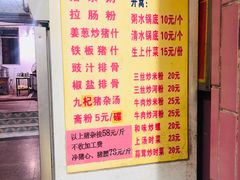 拉肠粉
姜葱炒猪什
铁板猪什
豉汁排骨
椒盐排骨
九杞猪杂汤
斋粉5元/碟
以上猪杂按58元/斤
不收加工费
净猪心，猪腰78元/斤
开窝：
粥水锅底10元/个
清水锅底10元/个
生上什菜15元/份
三丝炒米粉 20元
三丝炒河粉 20元
牛肉炒米粉 25元
牛肉炒河粉 25元
和味炒螺 20元
上汤时菜 23元
蒜茸炒时菜 20元